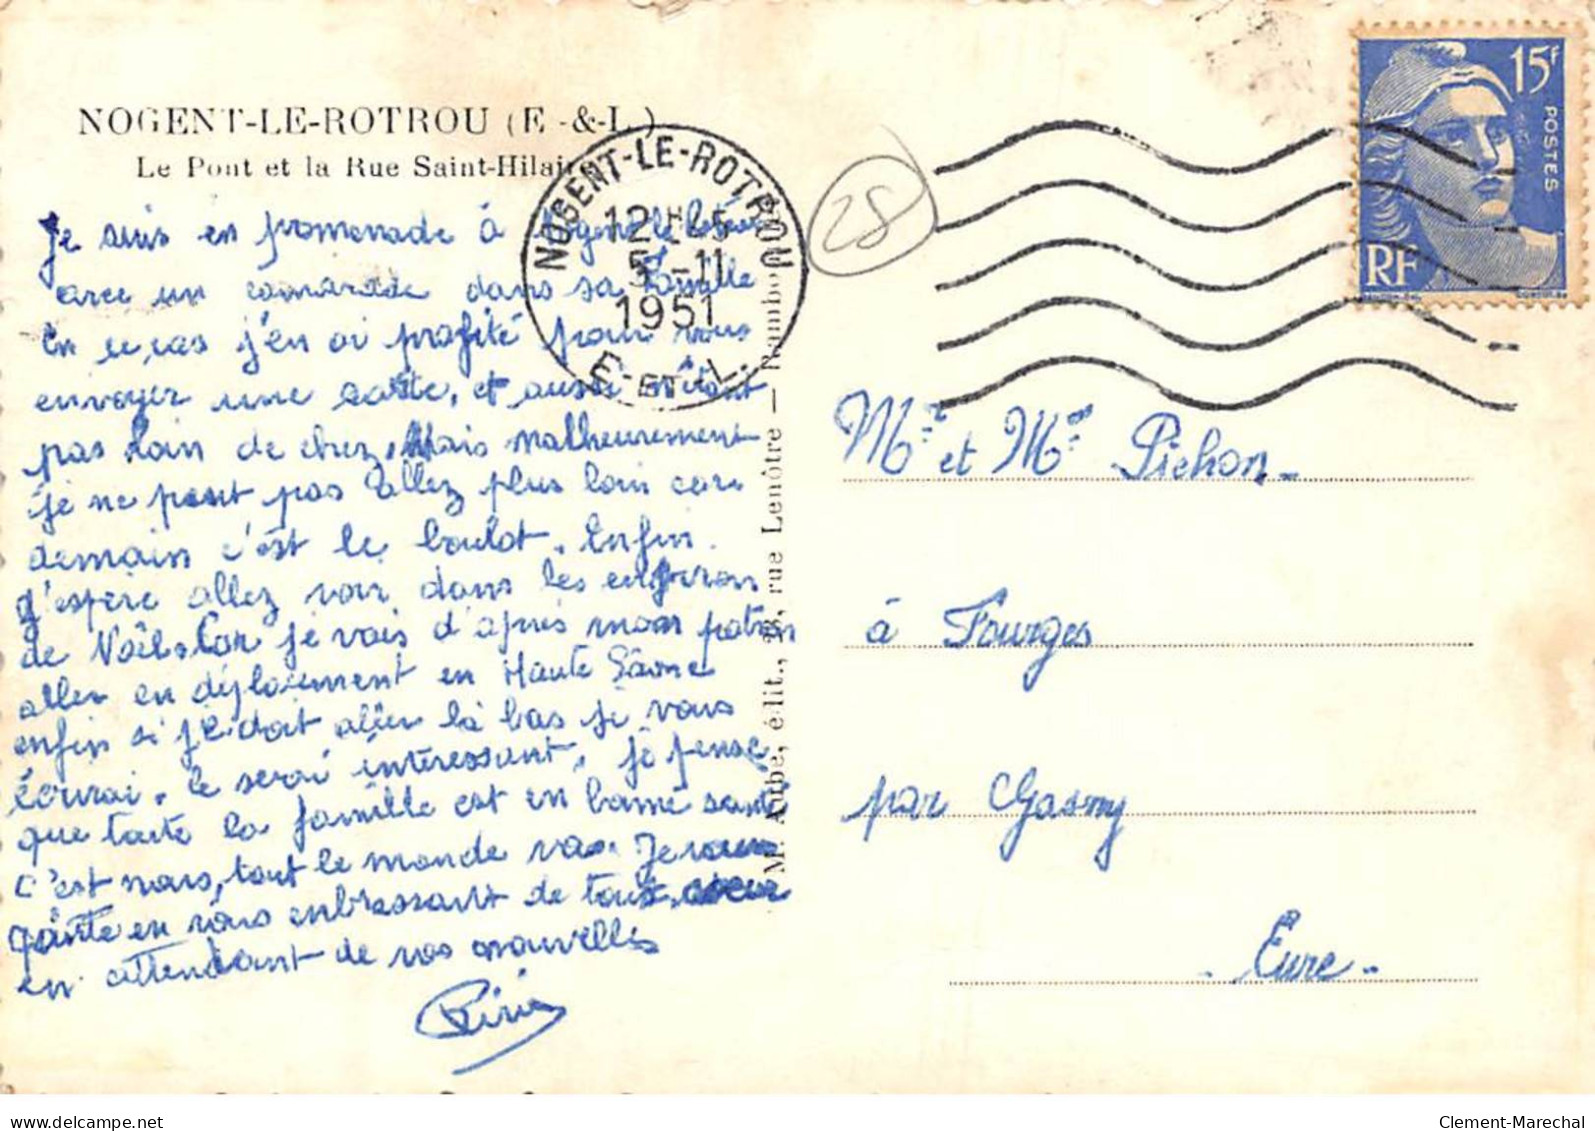 NOGENT-LE-ROTROU (E.-&-L.)
Le Pont et la Rue Saint-Hilaire
Je suis en promenade à Nogent le Rotrou
avec un camarade dans sa Famille
En ce cas j'en ai profité pour vous
envoyer une carte, et aussi n'étant
pas loin de chez, Mais malheureument
je ne peut pas allez plus loin car
demain c'est le boulot. Enfin
j'espère allez voir dans les environ
de Noël. Car je vais d'après mon patron
aller en déploiement en Haute Sâone
enfin si je doit aller là bas je vous
écrirai. le serai intéressant, je pense
que toute la famille est en bonne santé
c'est nous, tout le monde va. Je vous
quitte en vous enbrassant de tout coeur
en attendant de vos nouvelles
NOGENT-LE-ROTROU
12H45
5-11
1951
E.-ET-L.
28
M. Aubé, édit., rue Lenôtre — Rambouillet
15F
POSTES
RF
Mr et Me Pichon
à Fourges
par Gasny
- Eure -
delcampe.net
Clement-Marechal